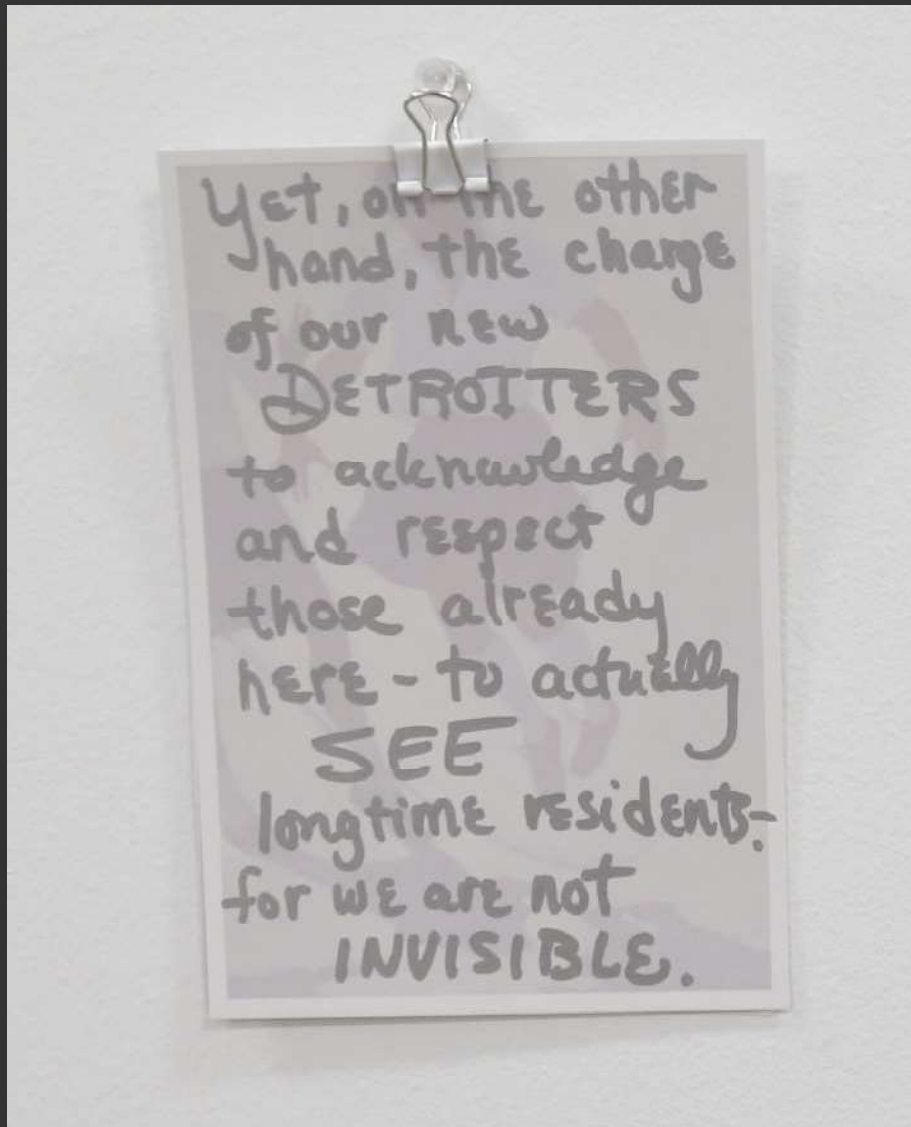 Yet, on the other
hand, the charge
of our new
DETROITERS
to acknowledge
and respect
those already
here - to actually
SEE
longtime residents -
for we are not
INVISIBLE.